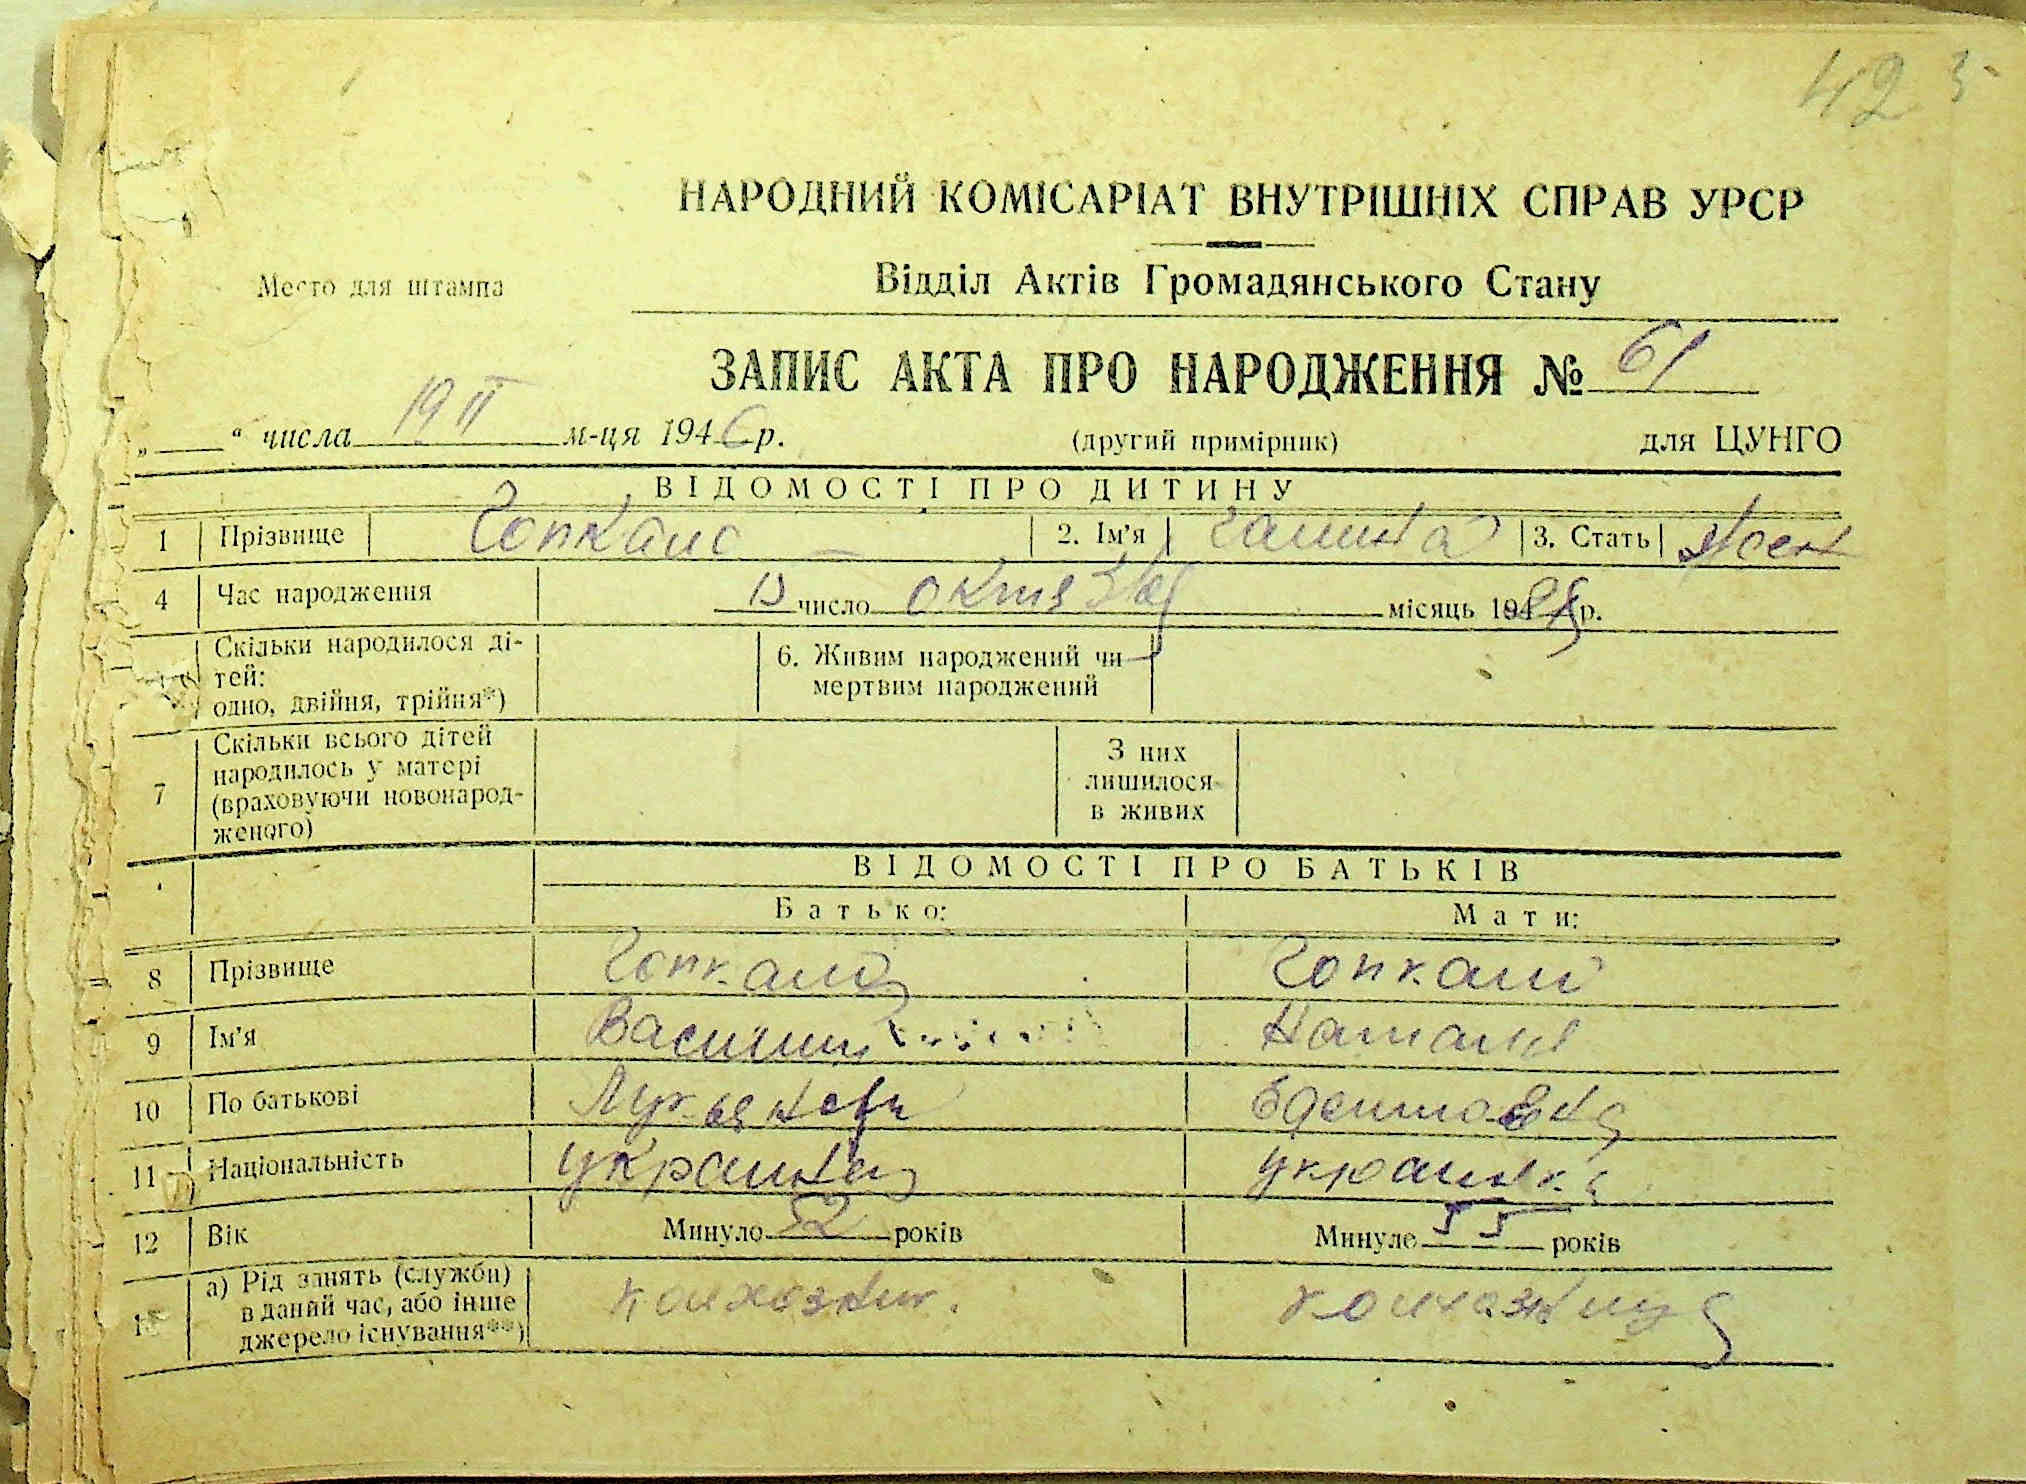 42
НАРОДНИЙ КОМІСАРІАТ ВНУТРІШНІХ СПРАВ УРСР
Место для штампа
Відділ Актів Громадянського Стану
ЗАПИС АКТА ПРО НАРОДЖЕННЯ № 61
„ “ числа 19 II м-ця 1946 р. (другий примірник) для ЦУНГО
ВІДОМОСТІ ПРО ДИТИНУ
1 Прізвище Гопкало 2. Ім'я Галина 3. Стать жен
4 Час народження число октября місяць р.
Скільки народилося ді-
тей:
одно, двійня, трійня*)
6. Живим народжений чи
мертвим народжений
7 Скільки всього дітей
народилось у матері
(враховуючи новонарод-
женого)
З них
лишилося
в живих
ВІДОМОСТІ ПРО БАТЬКІВ
Батько: Мати:
8 Прізвище Гопкало Гопкало
9 Ім'я Василий Наталия
10 По батькові Лукьянови
11 Національність украинец украинка
12 Вік Минуло 52 років Минуло 55 років
а) Рід занять (служби)
в даний час, або інше
джерело існування**)
колхозник. колхозница